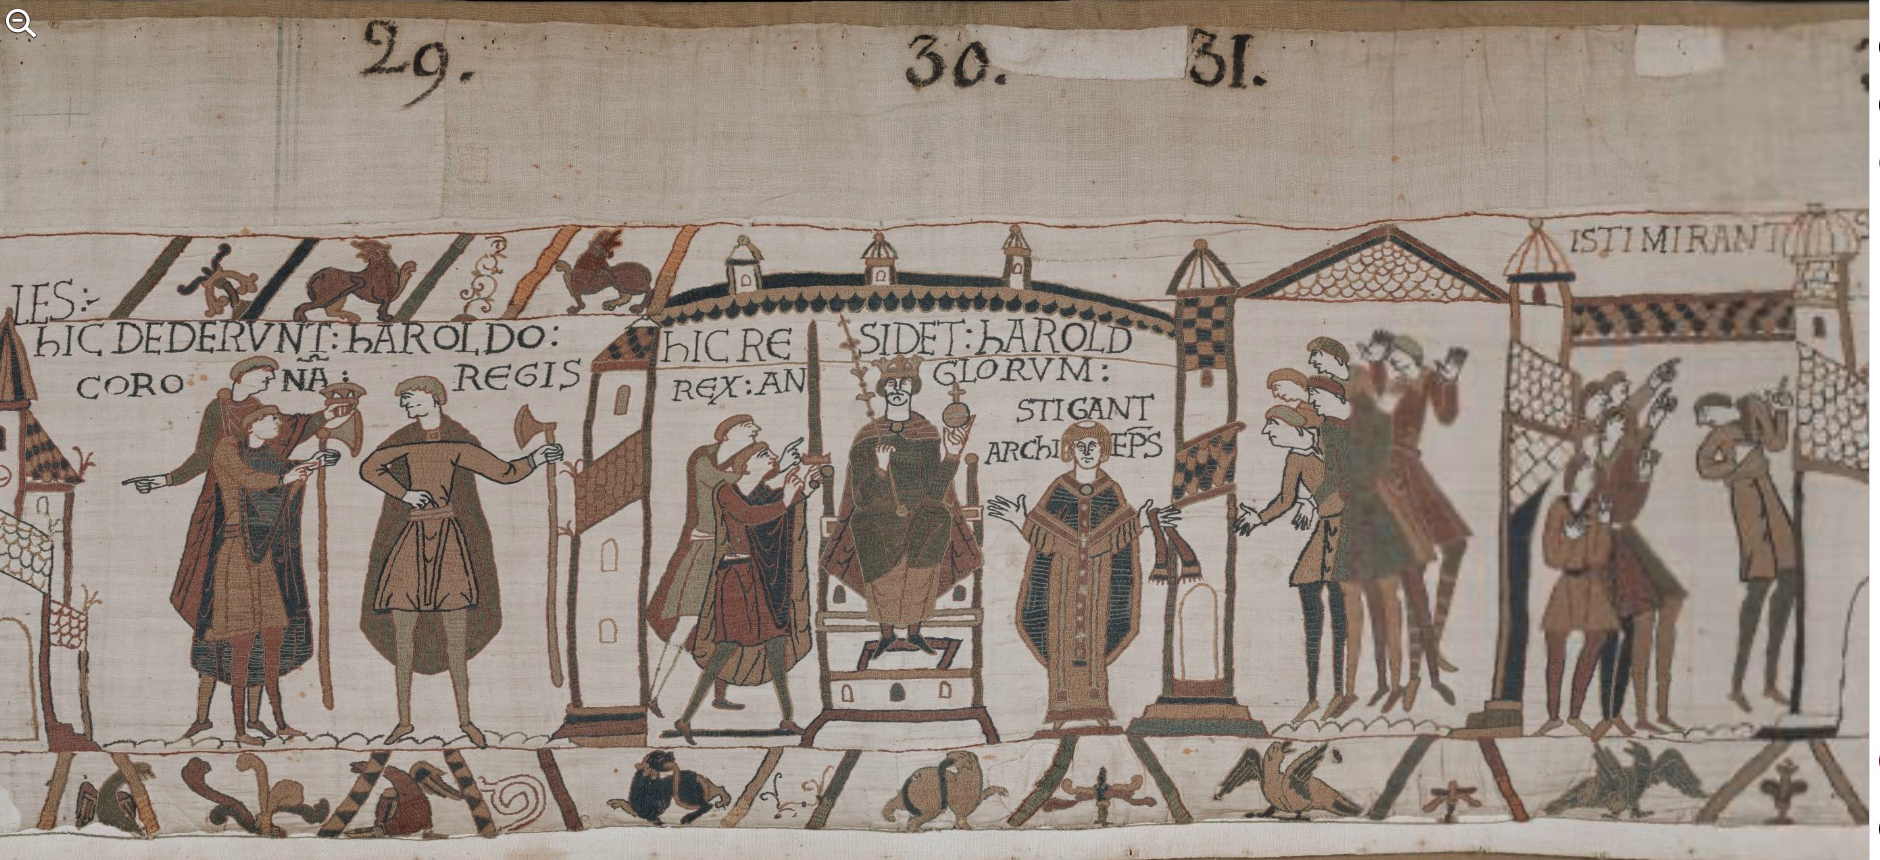 29.
30.
31.
LES:
hIC DEDERVNT: hAROLDO:
CORO NÃ: REGIS
hIC RE SIDET: hAROLD
REX: AN GLORVM:
STIGANT
ARChI EP̄S
ISTI MIRANT